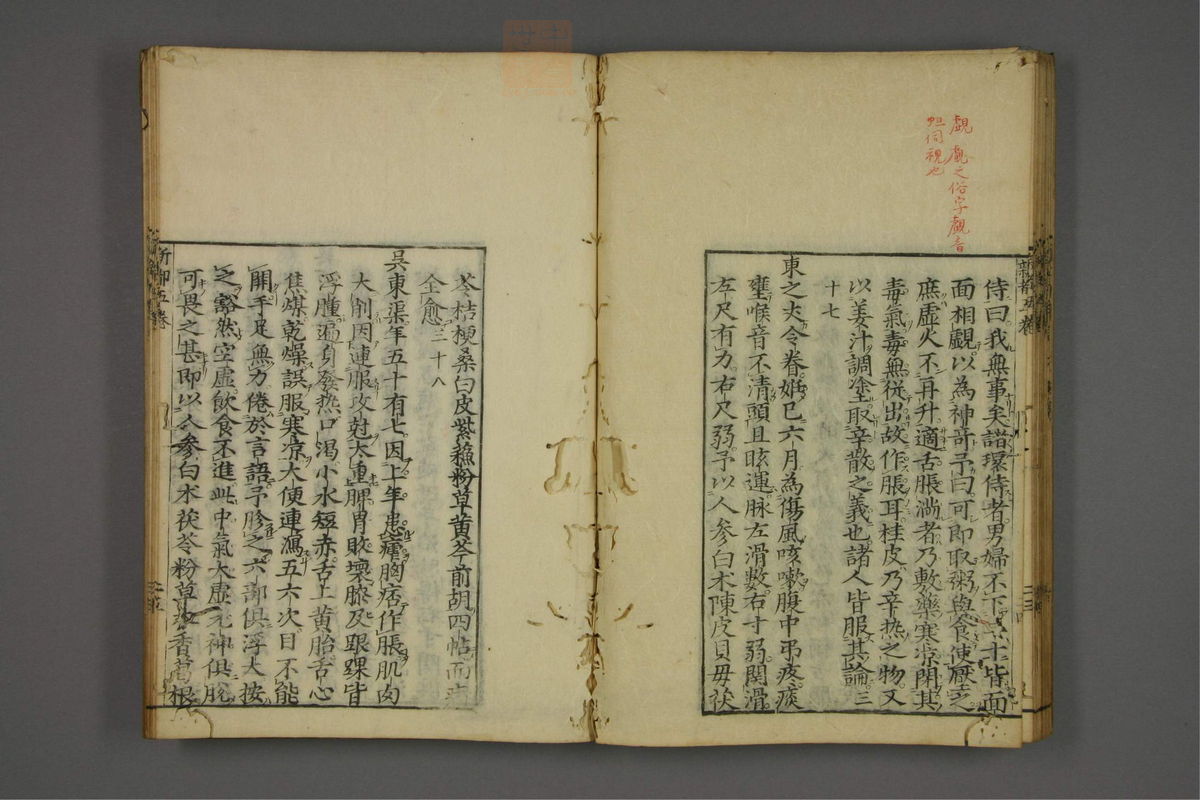 侍曰我無事矣諸環侍者男婦不下二三十皆面
面相覷以為神奇予曰可即取粥與食使壓之
庶虛火不再升適舌脹滿者乃敷藥寒凉閉其
毒氣毒無從出故作脹耳桂皮乃辛熱之物又
以姜汁調塗取辛散之義也諸人皆服其論三
十七
東之夫令眷姙已六月為傷風咳嗽腹中吊疼痰
壅喉音不清頭且眩運脉左滑數右寸弱関滑
左尺有力右尺弱予以人參白术陳皮貝母茯
苓桔梗桑白皮紫蘓粉草黄芩前胡四帖而
全愈三十八
吳東渠年五十有七因上年患瘧胸痞作脹肌肉
大削因連服攻尅太重脾胃敗壞膝及跟踝皆
浮腫遍身發熱口渴小水短赤舌上黄胎舌心
焦煤乾燥誤服寒凉大便連瀉五六次目不能
開手足無力倦於言語予胗之六部俱浮大按
之豁然空虛飲食不進此中氣大虛元神俱脫
可畏之甚即以人參白术茯苓粉草藿香葛根
覷 覰之俗字覰音
蛆伺視也